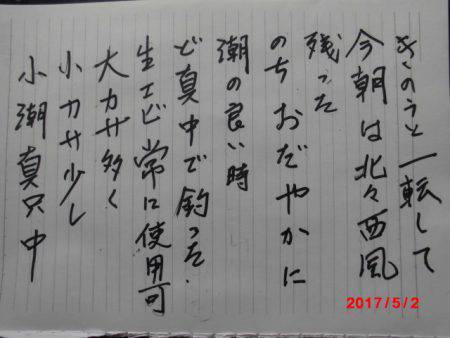 きのうと一転して
今朝は北々西風
残った
のちおだやかに
潮の良い時
ど真中で釣った.
生エビ常に使用可
大カサ多く
小カサ少し
小潮真只中
2017/5/2